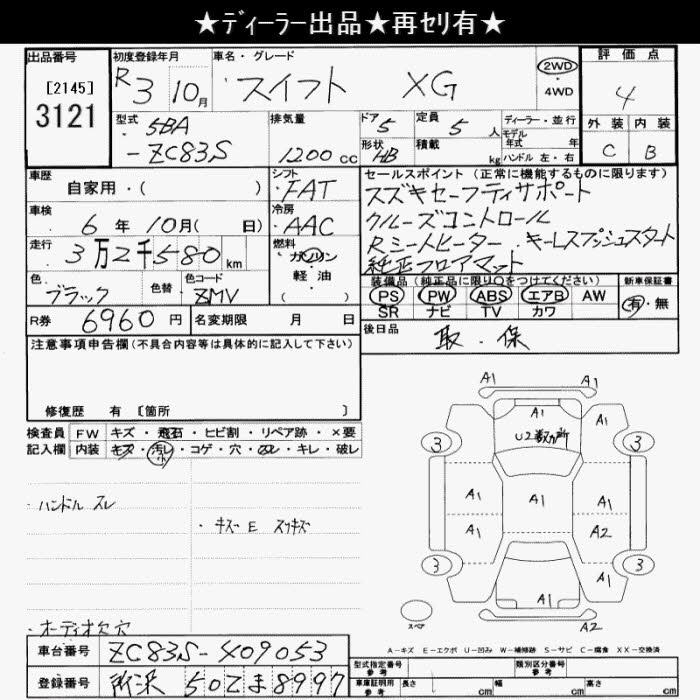 ★ディーラー出品★再セリ有★
出品番号
[2145]
3121
初度登録年月
R3 10月
車名・グレード
スイフト XG
2WD
・
4WD
評価点
4
外装 内装
C B
型式
5BA
-ZC83S
排気量
1200cc
ドア
5
定員
5人
形状
HB
積載
kg
ディーラー・並行
モデル
年式 年
ハンドル 左・右
車歴
自家用・( )
シフト
FAT
車検
6年 10月( 日)
冷房
AAC
走行
3万2千580km
燃料
ガソリン
軽・油
( )
色
ブラック
色替
色コード
ZMV
R券 6960円
名変期限 月 日
セールスポイント(正常に機能するものに限ります)
スズキセーフティサポート
クルーズコントロール
Rシートヒーター.キーレスプッシュスタート
純正フロアマット
装備品(純正品に限り○をつけてください)
PS PW ABS エアB AW
SR ナビ TV カワ
新車保証書
有・無
後日品
取.保
注意事項申告欄(不具合内容等は具体的に記入して下さい)
修復歴 有 [箇所 ]
検査員
記入欄
FW キズ・飛石・ヒビ割・リペア跡・×要
内装 キズ・汚レ・コゲ・穴・スレ・キレ・破レ
小
・ハンドル スレ
・キズE スリキズ
・オーディオ欠 穴
A1 A1
A1
U2数ヶ所
3 3
A1 A1 A1
A1 A2
3 3
A1
A1
A1 A2
スペア
A-キズ E-エクボ U-凹み W-補修跡 S-サビ C-腐食 XX-交換済
車台番号 ZC83S-409053
登録番号 所沢 502ま8997
型式指定番号
参考
類別区分番号
参考
車庫証明用
参考
長さ cm
幅 cm
高さ cm